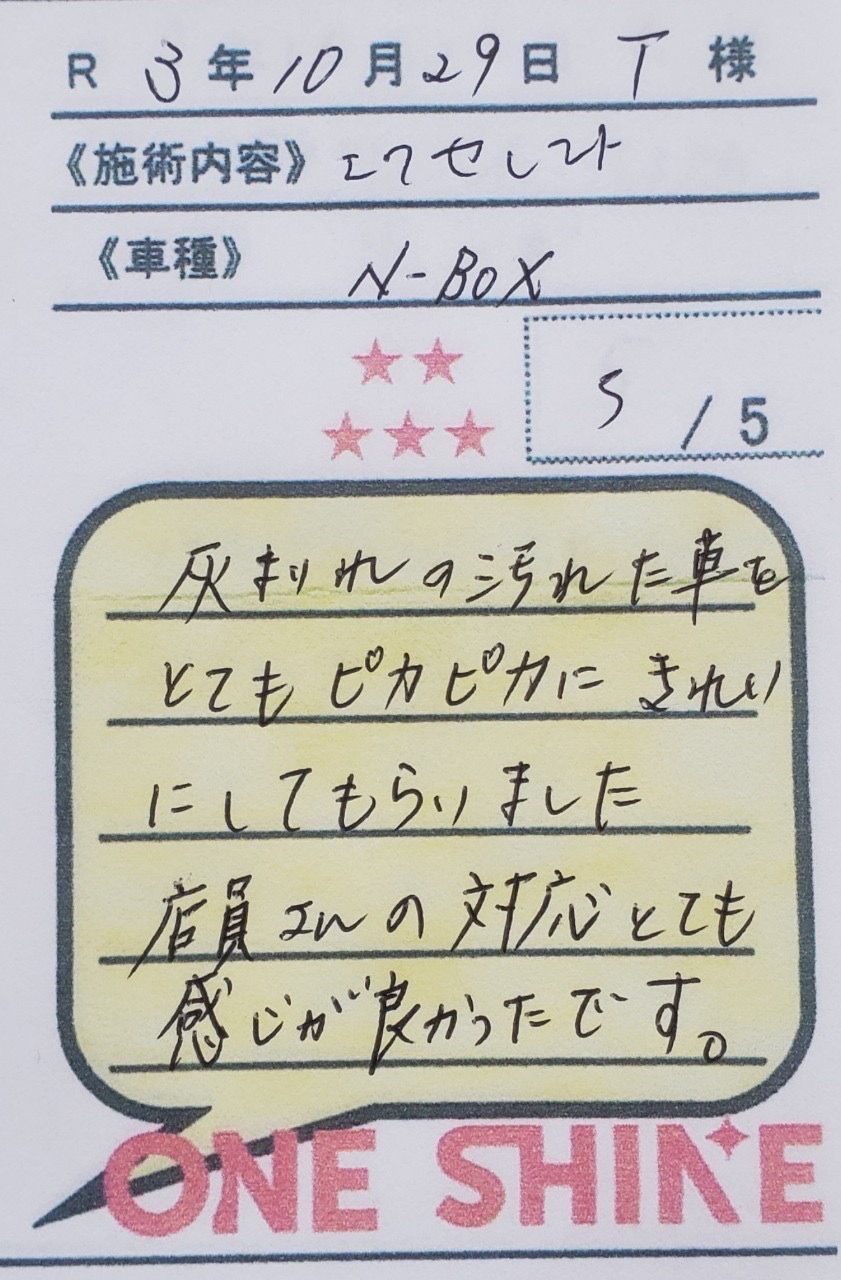 R 3年10月29日 T 様
《施術内容》エクセレント
《車種》 N-BOX
5 / 5
灰まみれの汚れた車を
とてもピカピカにきれい
にしてもらいました
店員さんの対応とても
感じが良かったです。
ONE SHINE